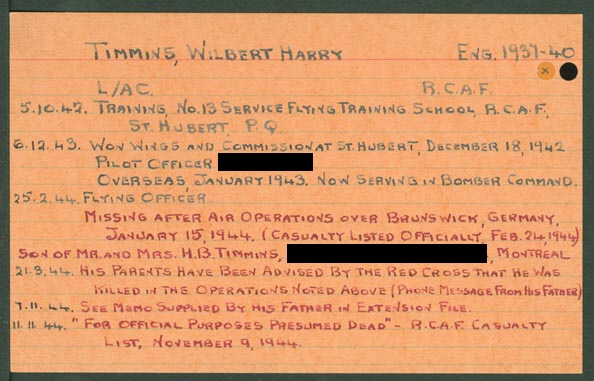 TIMMINS, WILBERT HARRY ENG. 1937-40
L/AC. R.C.A.F.
5.10.42. TRAINING, NO.13 SERVICE FLYING TRAINING SCHOOL, R.C.A.F.
ST. HUBERT, P.Q.
6.12.43. WON WINGS AND COMMISSION AT ST. HUBERT, DECEMBER 18, 1942
PILOT OFFICER
OVERSEAS, JANUARY 1943. NOW SERVING IN BOMBER COMMAND.
25.2.44. FLYING OFFICER.
MISSING AFTER AIR OPERATIONS OVER BRUNSWICK, GERMANY,
JANUARY 15, 1944. (CASUALTY LISTED OFFICIALLY, FEB. 24, 1944)
SON OF MR. AND MRS. H.B. TIMMINS, , MONTREAL
21.3.44. HIS PARENTS HAVE BEEN ADVISED BY THE RED CROSS THAT HE WAS
KILLED IN THE OPERATIONS NOTED ABOVE (PHONE MESSAGE FROM HIS FATHER)
7.11.44. SEE MEMO SUPPLIED BY HIS FATHER IN EXTENSION FILE.
11.11.44. "FOR OFFICIAL PURPOSES PRESUMED DEAD" - R.C.A.F. CASUALTY
LIST, NOVEMBER 9, 1944.